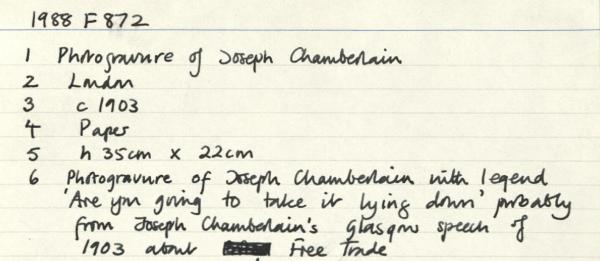 1988 F 872
1 Photogravure of Joseph Chamberlain
2 London
3 c 1903
4 Paper
5 h 35cm x 22cm
6 Photogravure of Joseph Chamberlain with legend
'Are you going to take it lying down' probably
from Joseph Chamberlain's Glasgow speech of
1903 about Free Trade